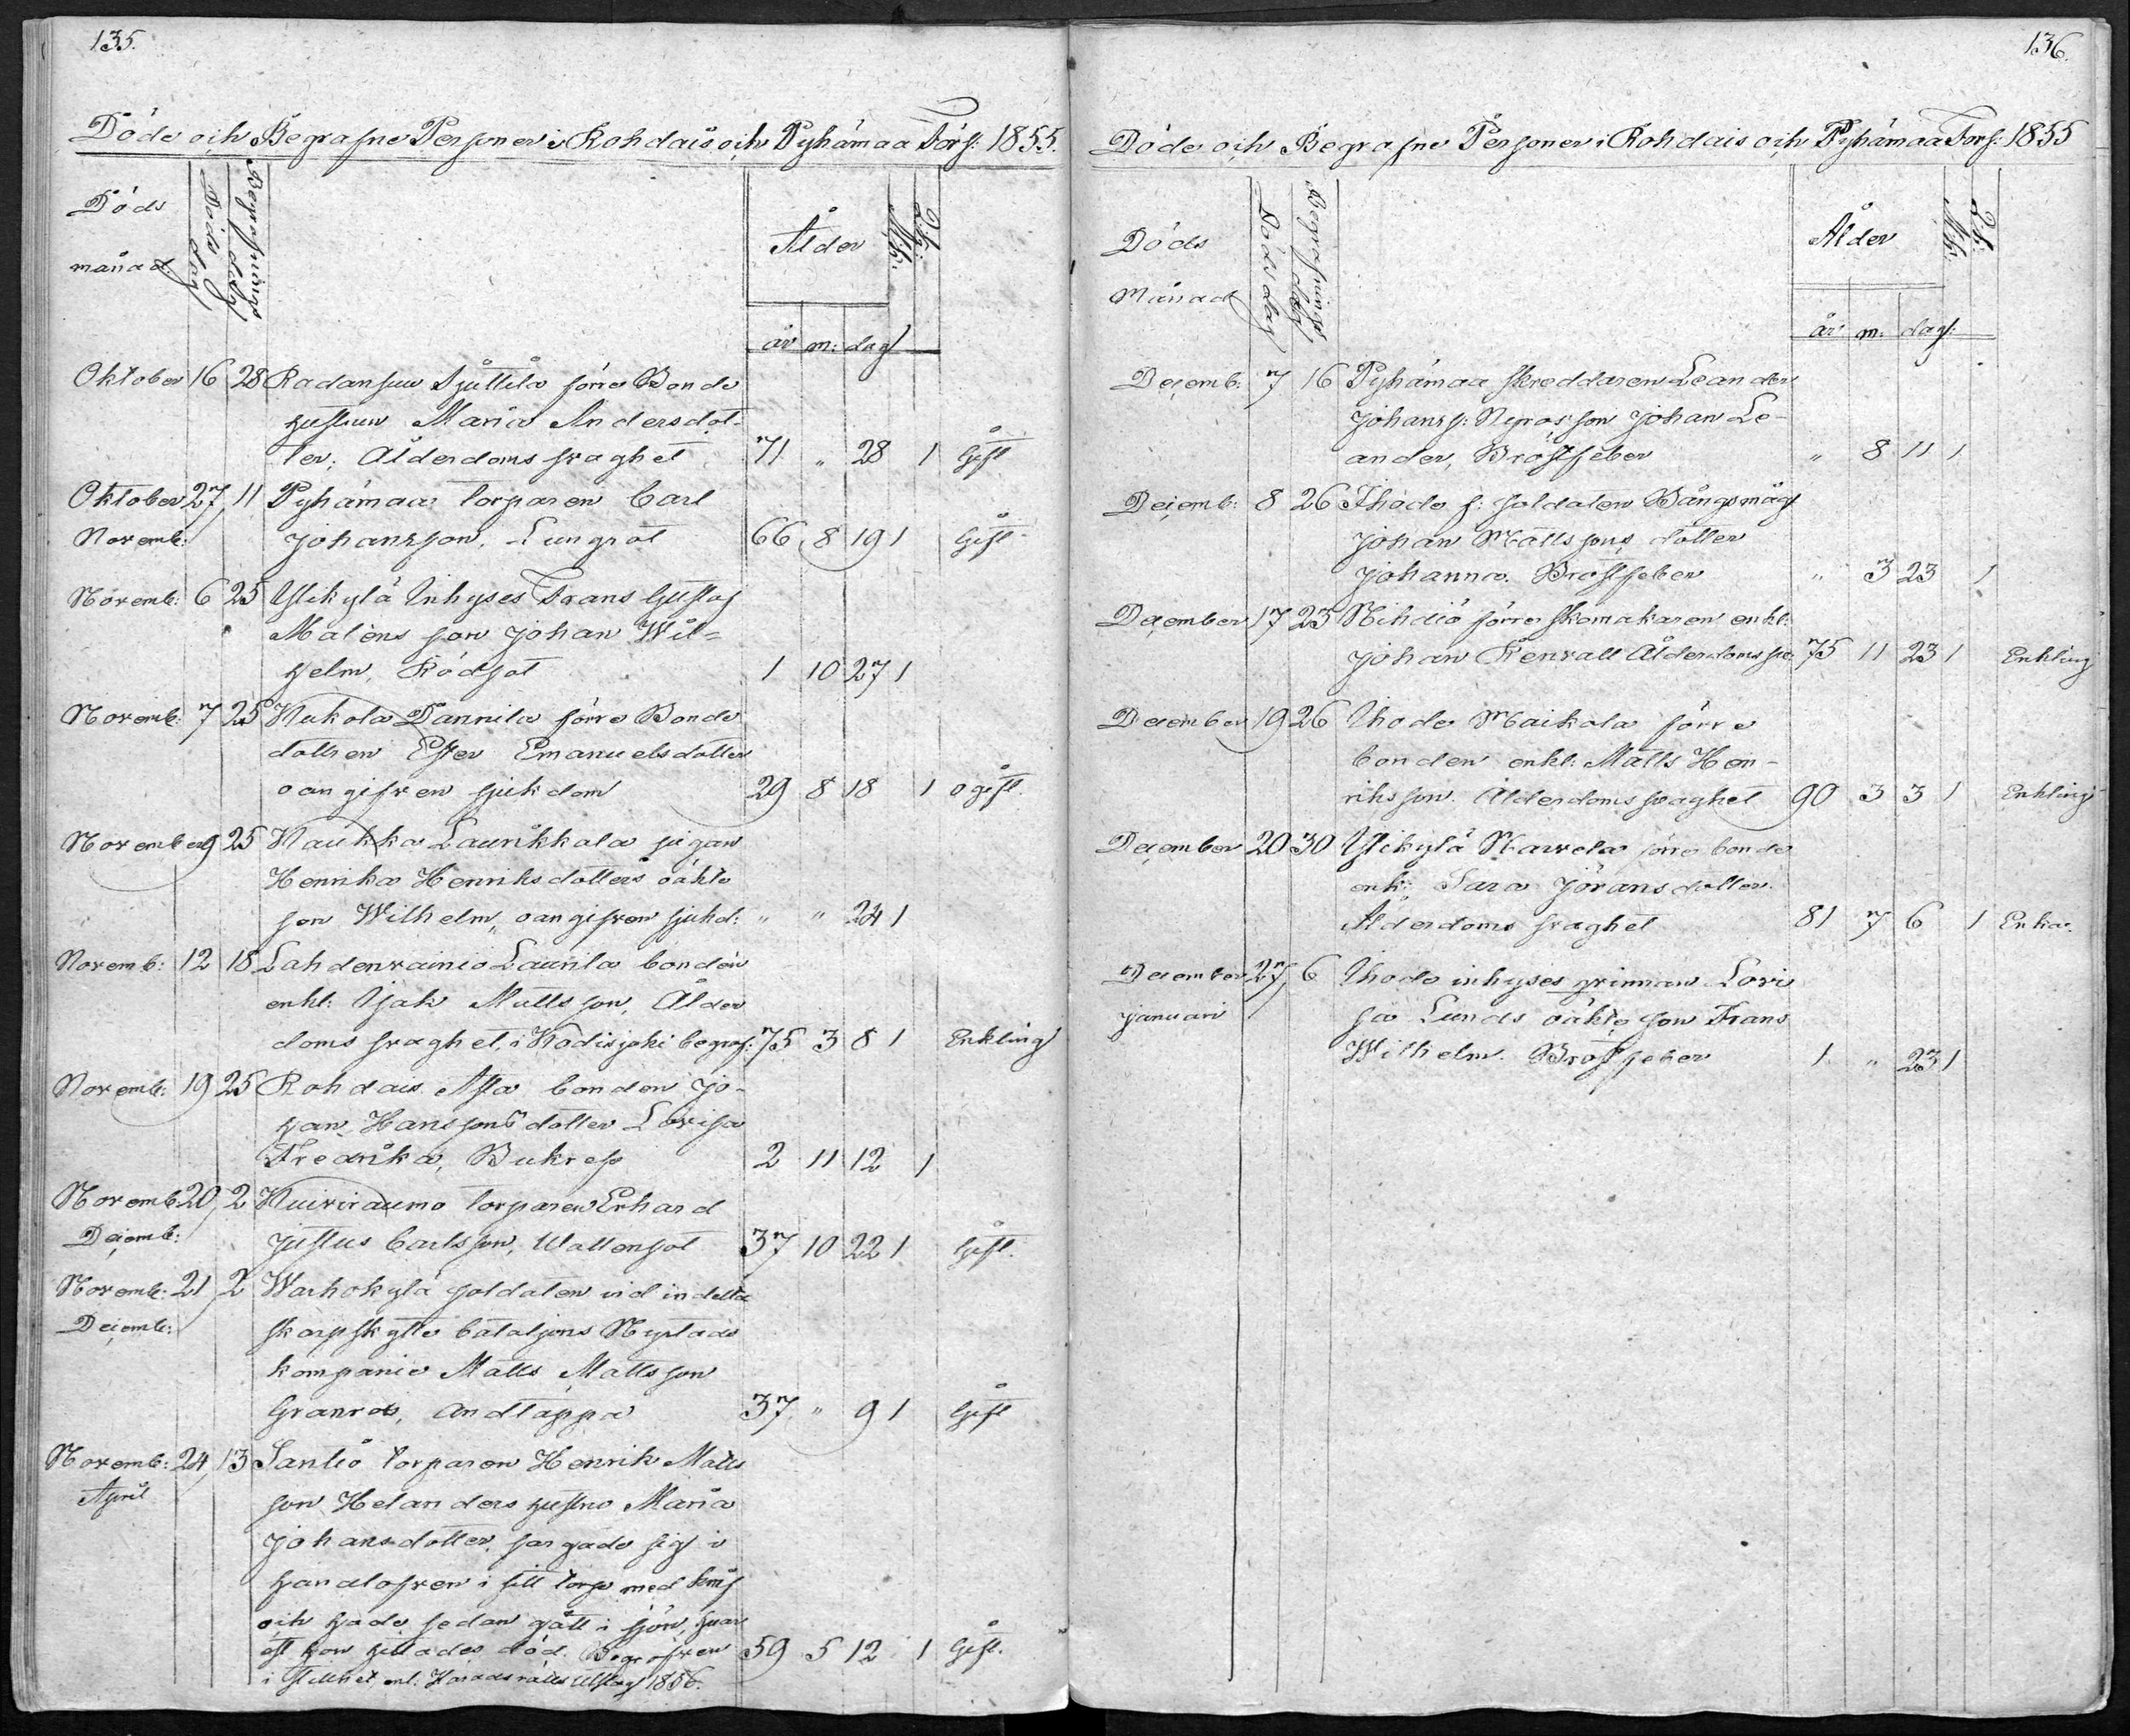 135.
Döde och Begrafne Personer i Rohdais och Pyhämaa Förs: 1855.
Döds månad
Döds dag
Begrafnings dag
Ålder
Mk:
Qk:
år m: dag
Oktober 16 28 Radansuu Sjuttila förre Bonde
hustrun Maria Andersdot-
ter, Ålderdoms svaghet 71 " 28 1 Gift
Oktober 27 11 Pyhämaa torparen Carl
Novemb: Johansson, Lungsot 66 8 19 1 Gift
Novemb: 6 25 Ylikylä Inhyses Frans Gustaf
Maléns son Johan Wil-
helm, Rödsot 1 10 27 1
Novemb: 7 25 Kukola Dannila förre Bonde
dottren Ester Emanuelsdotter
oangifven sjukdom 29 8 18 1 ogift.
November 9 25 Kaukka Laurikkala pigan
Henrika Henriksdotters oäkta
son Wilhelm, oangifven sjukd: " " 24 1
Novemb: 12 18 Lahdenvainio Laurila bonden
enkl: Isak Mattsson, Ålder
doms svaghet, i Kodisjoki begraf: 75 3 8 1 Enkling
Novemb: 19 25 Rohdais Asla bonden Jo-
han Hanssons dotter Lovisa
Fredrika, Bukref 2 11 12 1
Novemb 20 2 Kuivirauno torparen Erhard
Decemb: Justus Carlsson, Wattensot 37 10 22 1 Gift.
Novemb: 21 2 Warhokylä soldaten vid indelta
Decemb: skarpskytte bataljons Nystads
kompanie Matts Mattsson
Granros, Andtäppa 37 " 9 1 Gift
Novemb: 24 13 Santio torparen Henrik Matts
April son Helanders hustru Maria
Johansdotter, sargade sig i
handlofven i sitt torp med knif
och hade sedan gått i sjön, hvar
est hon hittades död. Begrafven 59 5 12 1 Gift.
i stillhet enl. Häradsrätts Utslag 1856.
136.
Döde och Begrafne Personer i Rohdais och Pyhämaa Förs: 1855
Döds Månad
Dödsdag
Begrafnings dag
Ålder
Mk:
Qk:
år m: dag:
Decemb: 7 16 Pyhämaa skreddaren Leander
Johans s: Negros son Johan Le-
ander, Bröstfeber " 8 11 1
Decemb: 8 26 Ihode f: soldaten Bångsmäg
Johan Mattssons dotter
Johanna. Bröstfeber " 3 23 1
December 17 23 Nihdiö förre skomakaren enkl:
Johan Renvall Ålderdoms sv: 75 11 23 1 Enkling
December 19 26 Ihode Maikola förre
bonden enkl: Matts Hen-
riksson. Ålderdoms svaghet 90 3 3 1 Enkling
December 20 30 Ylikylä Karvela förre bonde
enk: Sara Jöransdotter.
Ålderdoms svaghet 81 7 6 1 Enka.
December 27 6 Ihode inhyses qvinnan Lovi
Januari sa Lunds oäkta son Frans
Wilhelm. Bröstfeber 1 " 23 1